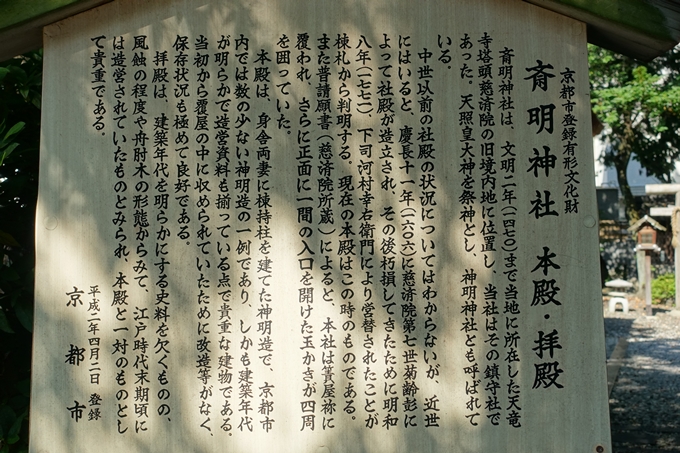 京都市登録有形文化財
斎明神社 本殿・拝殿
斎明神社は、文明二年(一四七〇)まで当地に所在した天竜
寺塔頭慈済院の旧境内地に位置し、当社はその鎮守社で
あった。天照皇大神を祭神とし、神明神社とも呼ばれて
いる。
中世以前の社殿の状況についてはわからないが、近世
にはいると、慶長十一年(一六〇六)に慈済院第七世菊齢彭に
よって社殿が造立され、その後朽損してきたために明和
八年(一七七一)、下司河村幸右衛門により営替されたことが
棟札から判明する。現在の本殿はこの時のものである。
また普請願書(慈済院所蔵)によると、本社は簀屋祢に
覆われ、さらに正面に一間の入口を開けた玉かきが四周
を囲っていた。
本殿は、身舎両妻に棟持柱を建てた神明造で、京都市
内では数の少ない神明造の一例であり、しかも建築年代
が明らかで造営資料も揃っている点で貴重な建物である。
当初から覆屋の中に収められていたために改造等がなく、
保存状況も極めて良好である。
拝殿は、建築年代を明らかにする史料を欠くものの、
風蝕の程度や舟肘木の形態からみて、江戸時代末期頃に
は造営されていたものとみられ、本殿と一対のものとし
て貴重である。
平成二年四月二日 登録
京都市